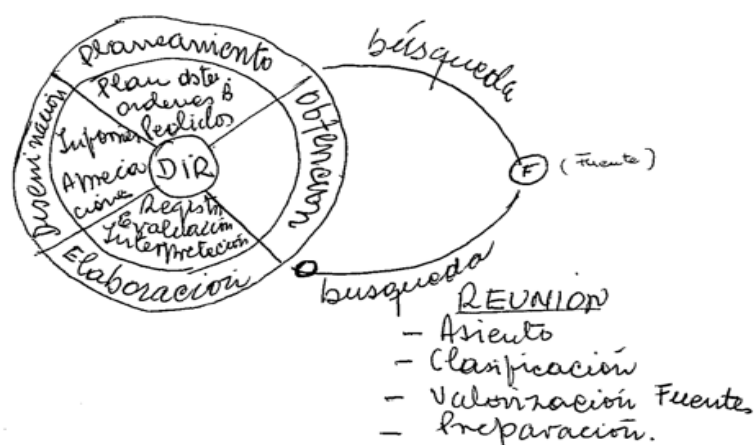 Planeamiento
Plan dste
ordenes B
Pedidos
Diseminación
Informes
Aprecia
ciones
DIR
Registr
Evaluación
Interpretación
Elaboración
Obtención
búsqueda
F (Fuente)
busqueda
REUNION
- Asiento
- Clasificación
- Valorización Fuentes
- Preparación.